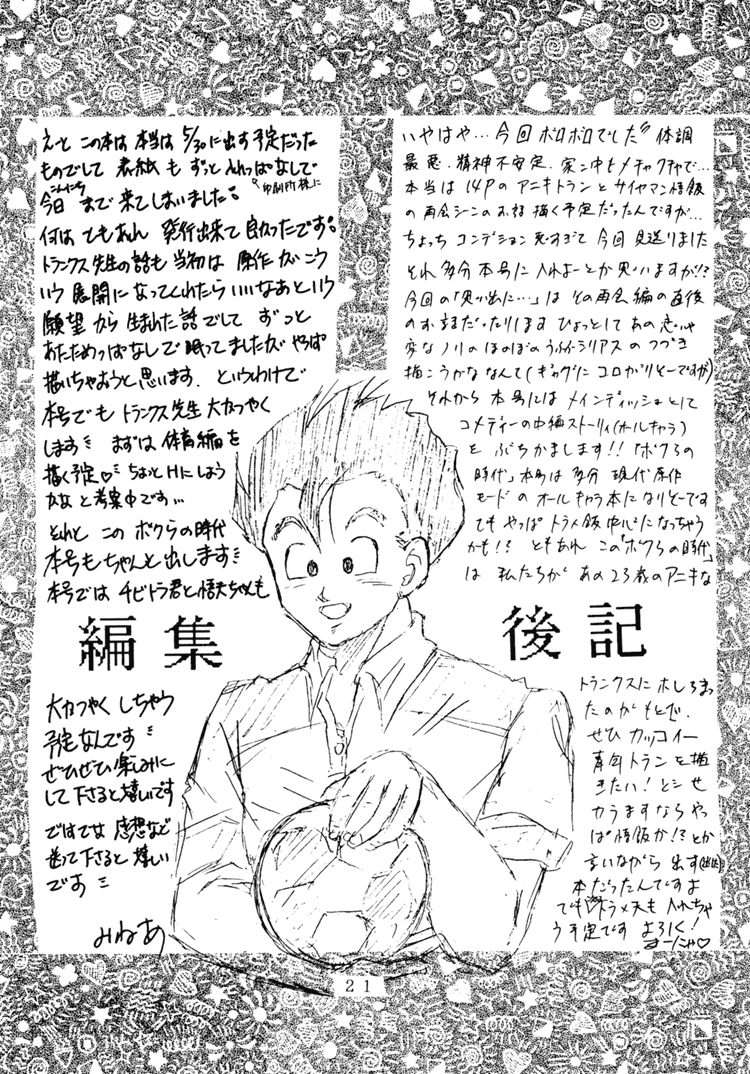 えーと この本は 本当は 5/30に出す予定だった
ものでして 表紙も ずっと 入れっぱなしで
印刷所様に
今日 まで 来てしまいました。
こんにち
何は ともあれ 発行出来て 良かったです。
トランクス先生の話も 当初は 原作が こう
いう 展開に なってくれたら いいなあ という
願望 から 生まれた 話でして ずっと
あたためっぱなしで 眠ってましたが やっぱ
描いちゃおうと思います. というわけで
本号でも トランクス先生 大かつやく
します まずは 体育編を
描く予定♡ ちょっと Hにしよう
かな と 考案中です…
それと この ボクらの時代
本号もちゃんと出します
本号では チビトラ君と悟天ちゃんも
編集
大かつやく しちゃう
予定なんです
ぜひぜひ 楽しみに
して下さると嬉しいです
ではでは 感想など
送って下さると 嬉しい
です
みねあ
いやはや… 今回 ボロボロでした 体調
最悪. 精神不安定. 家ン中もメチャクチャで…
本当は 14Pの アニキトランと サイヤマン悟飯
の 再会シーンのお話 描く予定だったんですが…
ちょっち コンデション 悪すぎて 今回 見送りました
それ 多分 本号に 入れよーとか 思いますが!?
今回の「思い出に…」は その再会編の直後
のお話だったりします ひょっとして あの
変なノリの ほのぼの シリアスの つづき
描こうかな なんて (ギャグに コロがりそーですが)
それから 本号には メインディッシュとして
コメディーの中編ストーリィ(オールキャラ)
を ぶちかまします!! 「ボクらの
時代」本号は 多分 現代原作
モードの オールキャラ本に なりそーです
でも やっぱ トラ×飯 中心に なっちゃう
かも!? ともあれ この「ボクらの時代」
は 私たちが あの 23歳のアニキな
後記
トランクスに ホレちまっ
たのが もとだ.
ぜひ カッコイー
青年トランを描
きたい!
カラますなら や
っぱ 悟飯か!? とか
言いながら 出す
本だったんですよ
でも トラ×天も 入れちゃ
う 予定です よろしく!
21